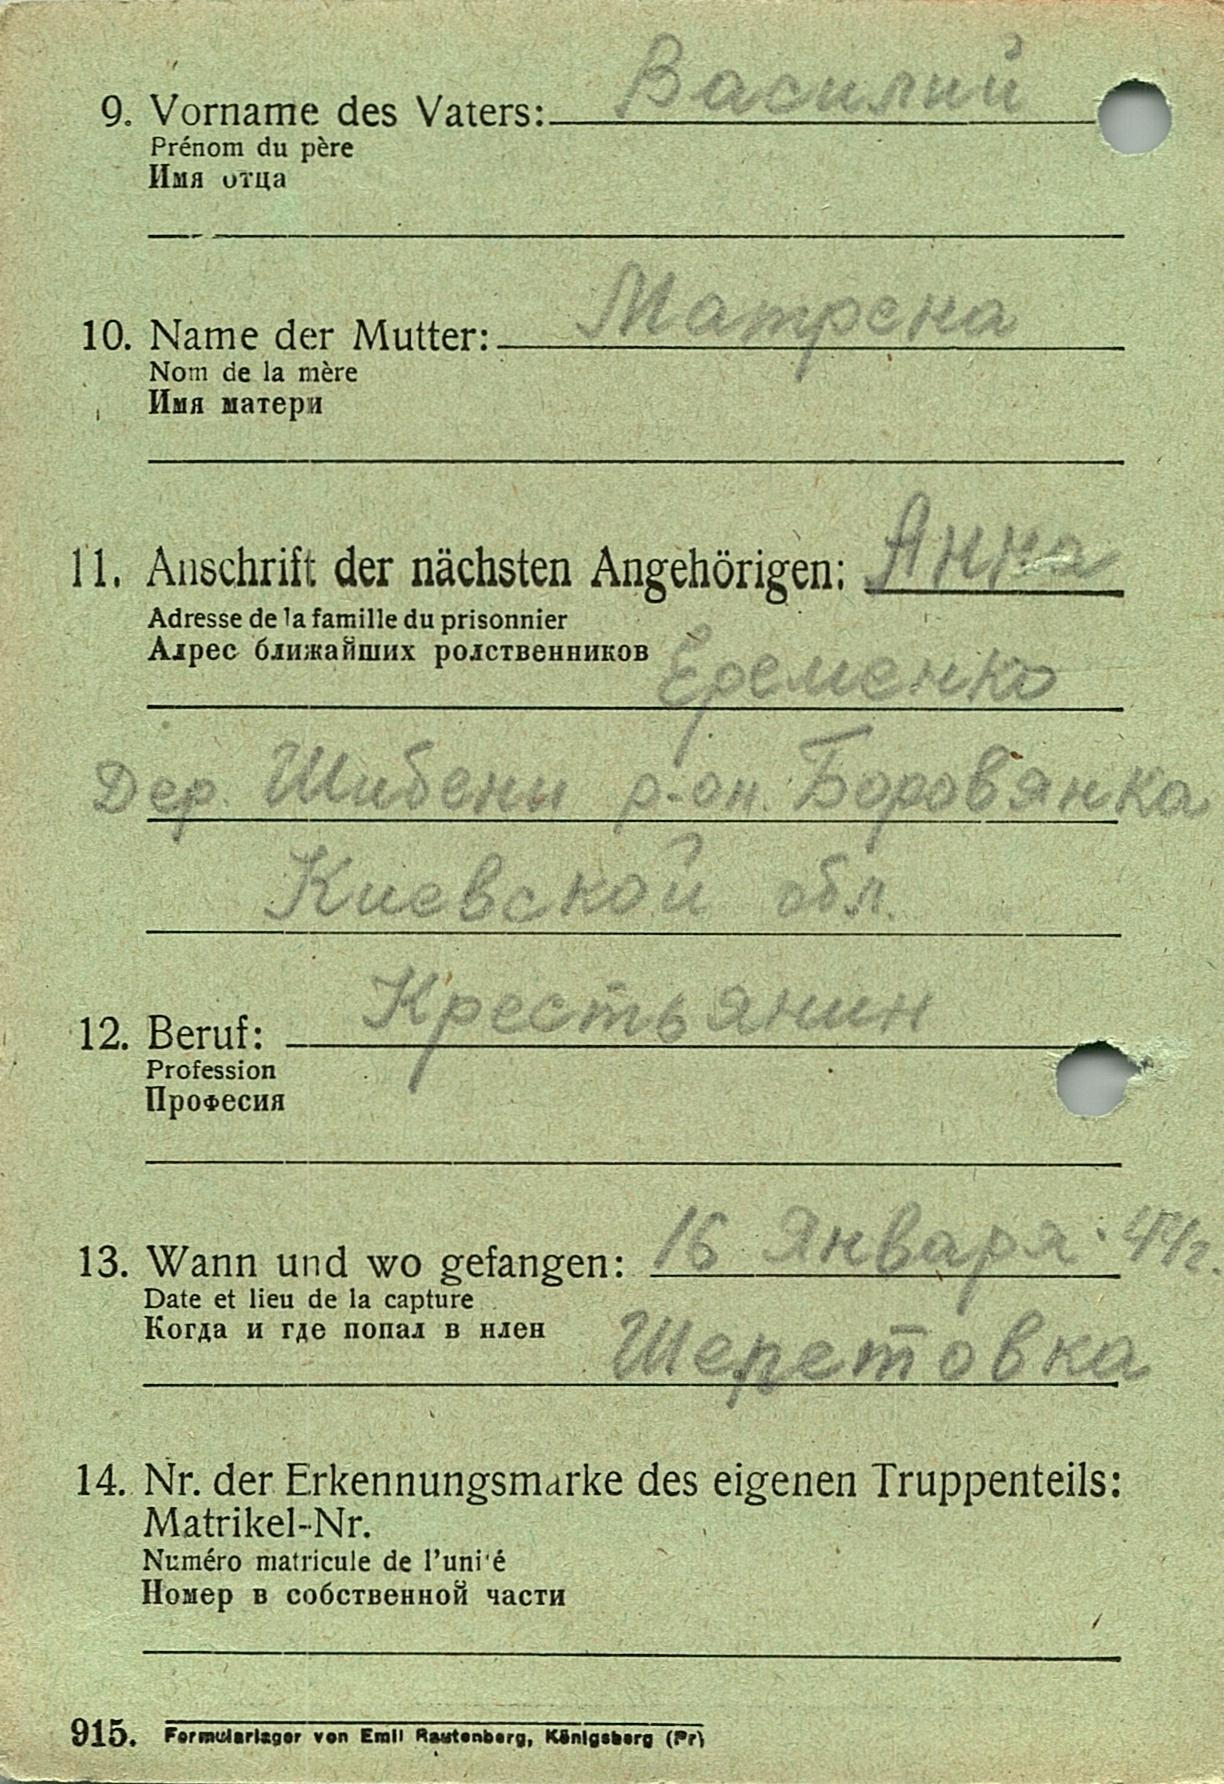 9. Vorname des Vaters: Василий
Prénom du père
Имя отца
10. Name der Mutter: Матрена
Nom de la mère
Имя матери
11. Anschrift der nächsten Angehörigen: Анна
Adresse de la famille du prisonnier
Адрес ближайших родственников Еременко
Дер. Шибени р-он. Боровянка
Киевской обл.
12. Beruf: Крестьянин
Profession
Професия
13. Wann und wo gefangen: 16 Января 44г.
Date et lieu de la capture
Когда и где попал в нлен Шеретовка
14. Nr. der Erkennungsmarke des eigenen Truppenteils:
Matrikel-Nr.
Numéro matricule de l'unité
Номер в собственной части
915. Formularlager von Emil Rautenberg, Königsberg (Pr)